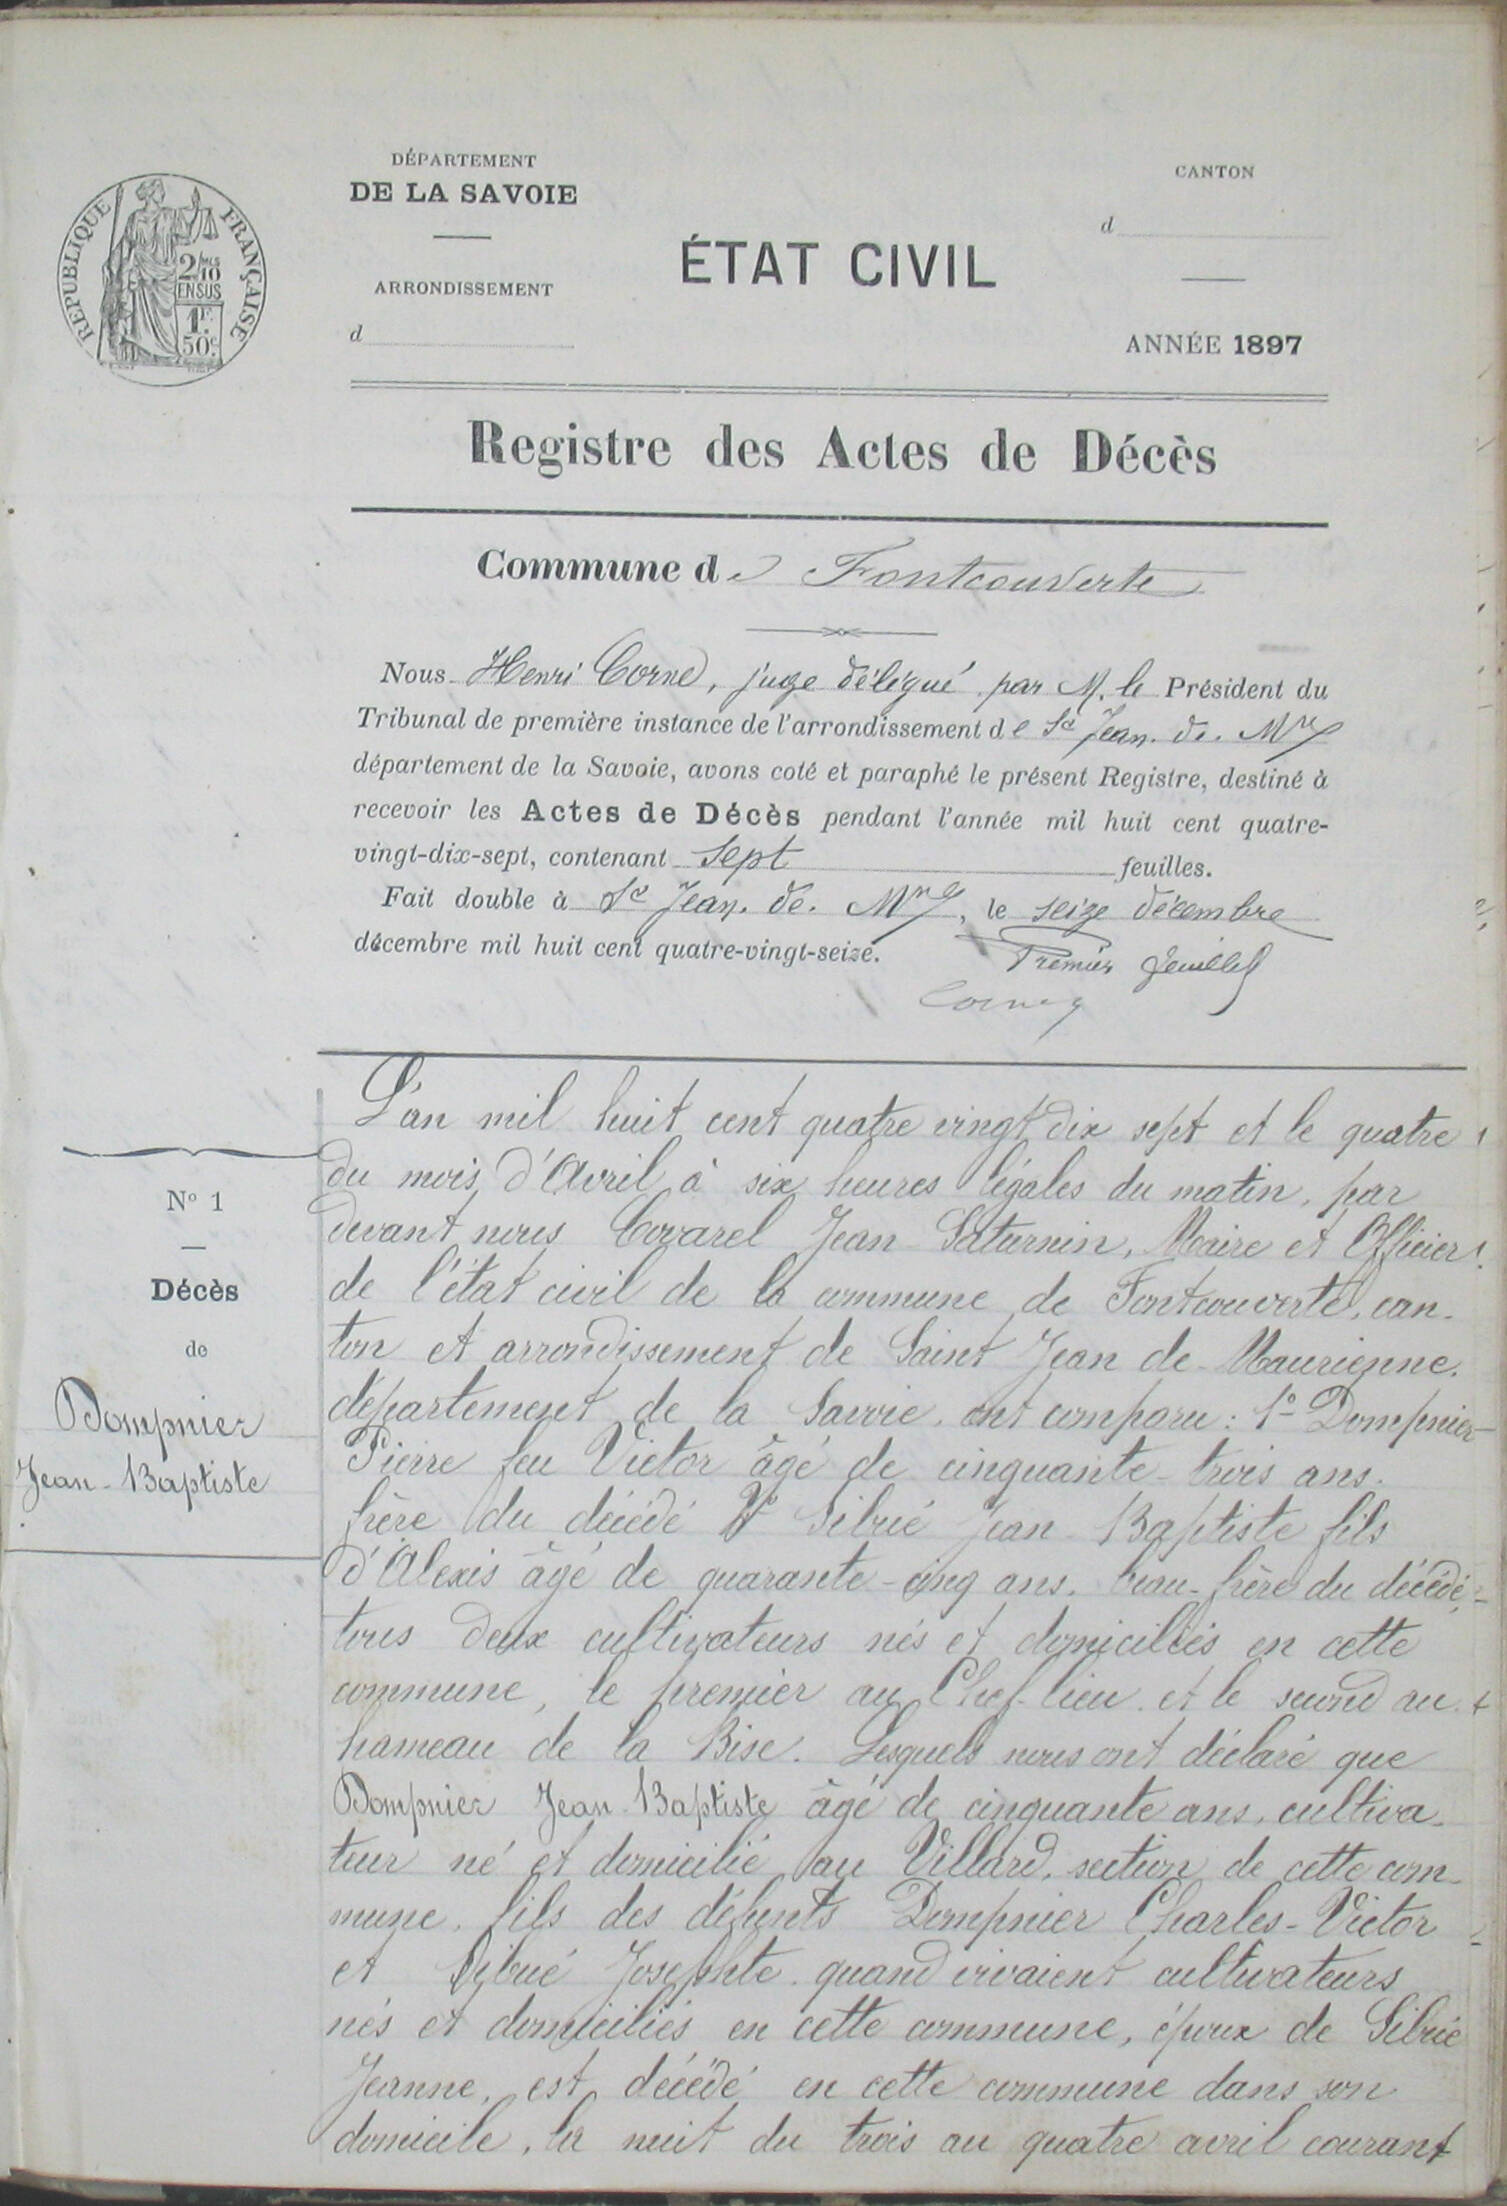 DÉPARTEMENT
DE LA SAVOIE
ARRONDISSEMENT
d
ÉTAT CIVIL
CANTON
d
ANNÉE 1897
RÉPUBLIQUE FRANÇAISE
2/10
EN SUS
1F.
50c.
Registre des Actes de Décès
Commune de Fontcouverte
Nous Henri Corne, juge délégué par M. le Président du
Tribunal de première instance de l'arrondissement de St Jean de Mne
département de la Savoie, avons coté et paraphé le présent Registre, destiné à
recevoir les Actes de Décès pendant l'année mil huit cent quatre-
vingt-dix-sept, contenant sept feuilles.
Fait double à St Jean de Mne, le seize décembre
décembre mil huit cent quatre-vingt-seize.
Premier feuillet
L'an mil huit cent quatre vingt dix sept et le quatre
du mois d'Avril à six heures légales du matin, par
devant nous Covarel Jean Saturnin, Maire et Officier
de l'état civil de la commune de Fontcouverte, can-
ton et arrondissement de Saint Jean de Maurienne,
département de la Savoie, ont comparu : 1° Dompnier
Pierre feu Victor âgé de cinquante-trois ans,
frère du décédé 2° Sibué Jean-Baptiste fils
d'Alexis âgé de quarante-cinq ans, beau-frère du décédé,
tous deux cultivateurs nés et domiciliés en cette
commune, le premier au Chef-lieu et le second au
hameau de la Bise. Lesquels nous ont déclaré que
Dompnier Jean-Baptiste âgé de cinquante ans, cultiva-
teur né et domicilié au Villard, section de cette com-
mune, fils des défunts Dompnier Charles-Victor
et Sibué Josephte quand vivaient cultivateurs
nés et domiciliés en cette commune, époux de Sibué
Jeanne, est décédé en cette commune dans son
domicile, la nuit du trois au quatre avril courant
N° 1
Décès
de
Dompnier
Jean-Baptiste